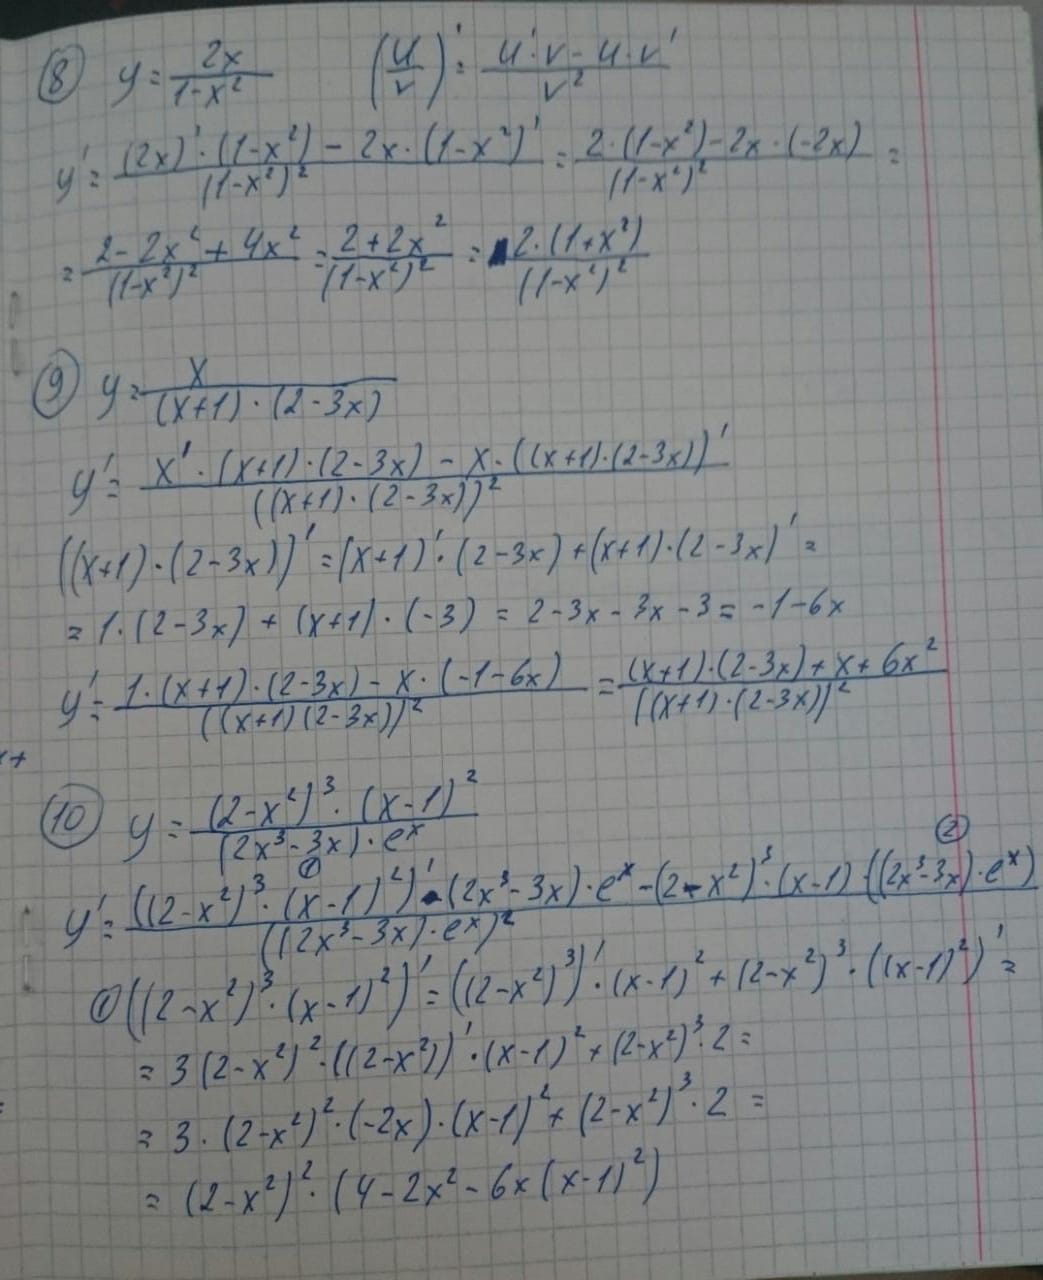 ⑧ y = 2x/(1-x²) (u/v)' = (u'·v - u·v')/v²
y' = ((2x)'·(1-x²) - 2x·(1-x²)')/(1-x²)² = (2·(1-x²) - 2x·(-2x))/(1-x²)² =
= (2-2x²+4x²)/(1-x²)² = (2+2x²)/(1-x²)² = 2·(1+x²)/(1-x²)²
⑨ y = x/((x+1)·(2-3x))
y' = (x'·(x+1)·(2-3x) - x·((x+1)·(2-3x))')/((x+1)·(2-3x))²
((x+1)·(2-3x))' = (x+1)'·(2-3x)+(x+1)·(2-3x)' =
= 1·(2-3x) + (x+1)·(-3) = 2-3x-3x-3 = -1-6x
y' = (1·(x+1)·(2-3x) - x·(-1-6x))/((x+1)(2-3x))² = ((x+1)·(2-3x)+x+6x²)/((x+1)·(2-3x))²
⑩ y = ((2-x²)³·(x-1)²)/((2x³-3x)·eˣ)
① ②
y' = (((2-x²)³·(x-1)²)'·(2x³-3x)·eˣ-(2-x²)³·(x-1)·((2x³-3x)·eˣ)/((2x³-3x)·eˣ)²
① ((2-x²)³·(x-1)²)' = ((2-x²)³)'·(x-1)²+(2-x²)³·((x-1)²)' =
= 3(2-x²)²·((2-x²))'·(x-1)²+(2-x²)³·2 =
= 3·(2-x²)²·(-2x)·(x-1)²+(2-x²)³·2 =
= (2-x²)²·(4-2x²-6x(x-1)²)